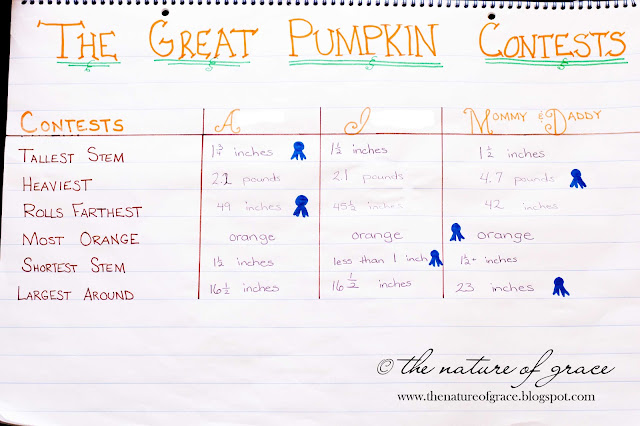 THE GREAT PUMPKIN CONTESTS
CONTESTS A J MOMMY & DADDY
TALLEST STEM 1 3/4 inches 1 1/2 inches 1 1/2 inches
HEAVIEST 2.2 pounds 2.1 pounds 4.7 pounds
ROLLS FARTHEST 49 inches 45 1/2 inches 42 inches
MOST ORANGE orange orange orange
SHORTEST STEM 1 1/2 inches less than 1 inch 1 1/2+ inches
LARGEST AROUND 16 1/2 inches 16 1/2 inches 23 inches
© the nature of grace
www.thenatureofgrace.blogspot.com